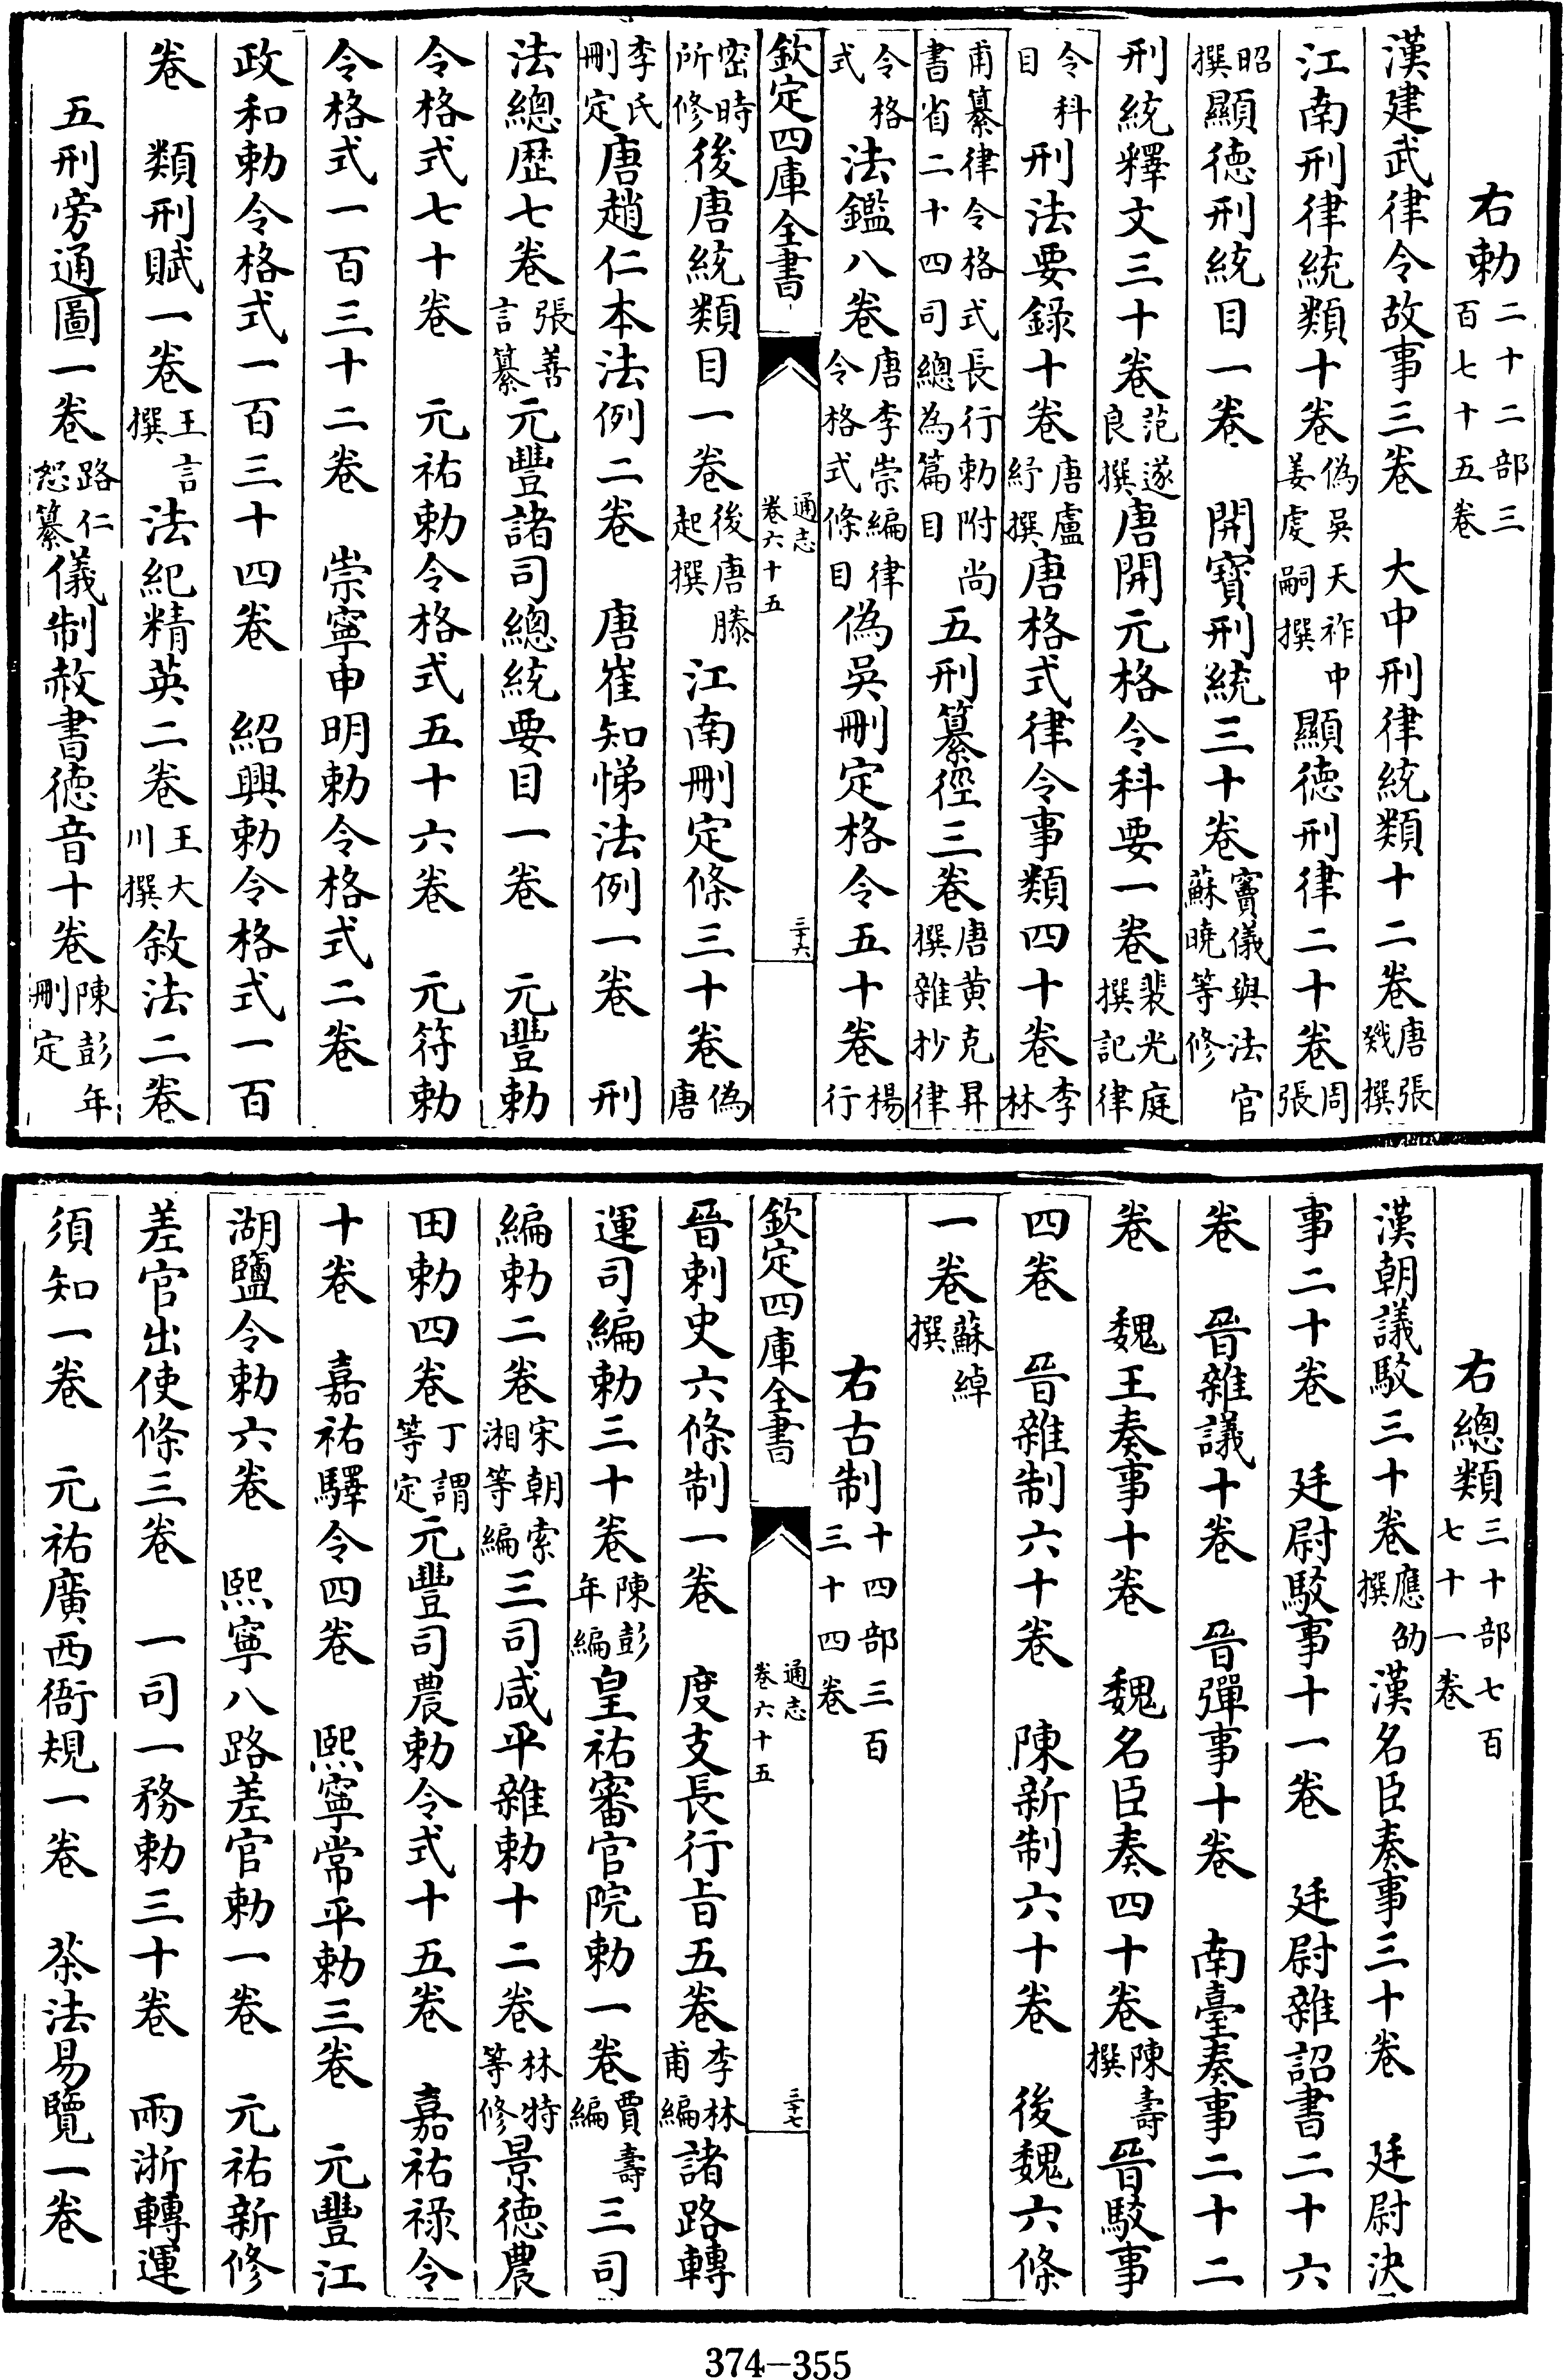 右勅二十二部三百七十五卷
漢建武律令故事三卷　大中刑律統類十二卷唐張戣撰
江南刑律統類十卷偽吳天祚中姜虔嗣撰顯德刑律二十卷周張
昭撰顯德刑統目一卷　開寳刑統三十卷竇儀與法官蘇曉等修
刑統釋文三十卷范遂良撰唐開元格令科要一卷裴光庭撰記律
令科目刑法要錄十卷唐盧紓撰唐格式律令事類四十卷李林
甫纂律令格式長行勅附尚書省二十四司總為篇目五刑纂徑三卷唐黄克昇撰雜抄律
令格式法鑑八卷唐李崇編律令格式條目偽吳刪定格令五十卷楊行
欽定四庫全書　通志卷六十五　三十六
密時所修後唐統類目一卷後唐滕起撰江南刪定條三十卷偽唐
李氏刪定唐趙仁本法例二卷　唐崔知悌法例一卷　刑
法總歴七卷張善言纂元豐諸司總統要目一卷　元豐勅
令格式七十卷　元祐勅令格式五十六卷　元符勅
令格式一百三十二卷　崇寧申明勅令格式二卷
政和勅令格式一百三十四卷　紹興勅令格式一百
卷　類刑賦一卷王言撰法紀精英二卷王大川撰敘法二卷
五刑旁通圖一卷路仁恕纂儀制赦書德音十卷陳彭年刪定
右總類三十部七百七十一卷
漢朝議駮三十卷應劭撰漢名臣奏事三十卷　廷尉決
事二十卷　廷尉駮事十一卷　廷尉雜詔書二十六
卷　晉雜議十卷　晉彈事十卷　南臺奏事二十二
卷　魏王奏事十卷　魏名臣奏四十卷陳壽撰晉駮事
四卷　晉雜制六十卷　陳新制六十卷　後魏六條
一卷蘇綽撰
右古制十四部三百三十四卷
欽定四庫全書　通志卷六十五　三十七
晉刺史六條制一卷　度支長行㫖五卷李林甫編諸路轉
運司編勅三十卷陳彭年編皇祐審官院勅一卷賈壽編三司
編勅二卷宋朝索湘等編三司咸平雜勅十二卷林特等修景德農
田勅四卷丁謂等定元豐司農勅令式十五卷　嘉祐禄令
十卷　嘉祐驛令四卷　熙寧常平勅三卷　元豐江
湖鹽令勅六卷　熙寧八路差官勅一卷　元祐新修
差官出使條三卷　一司一務勅三十卷　兩浙轉運
須知一卷　元祐廣西衙規一卷　茶法易覽一卷
374-355